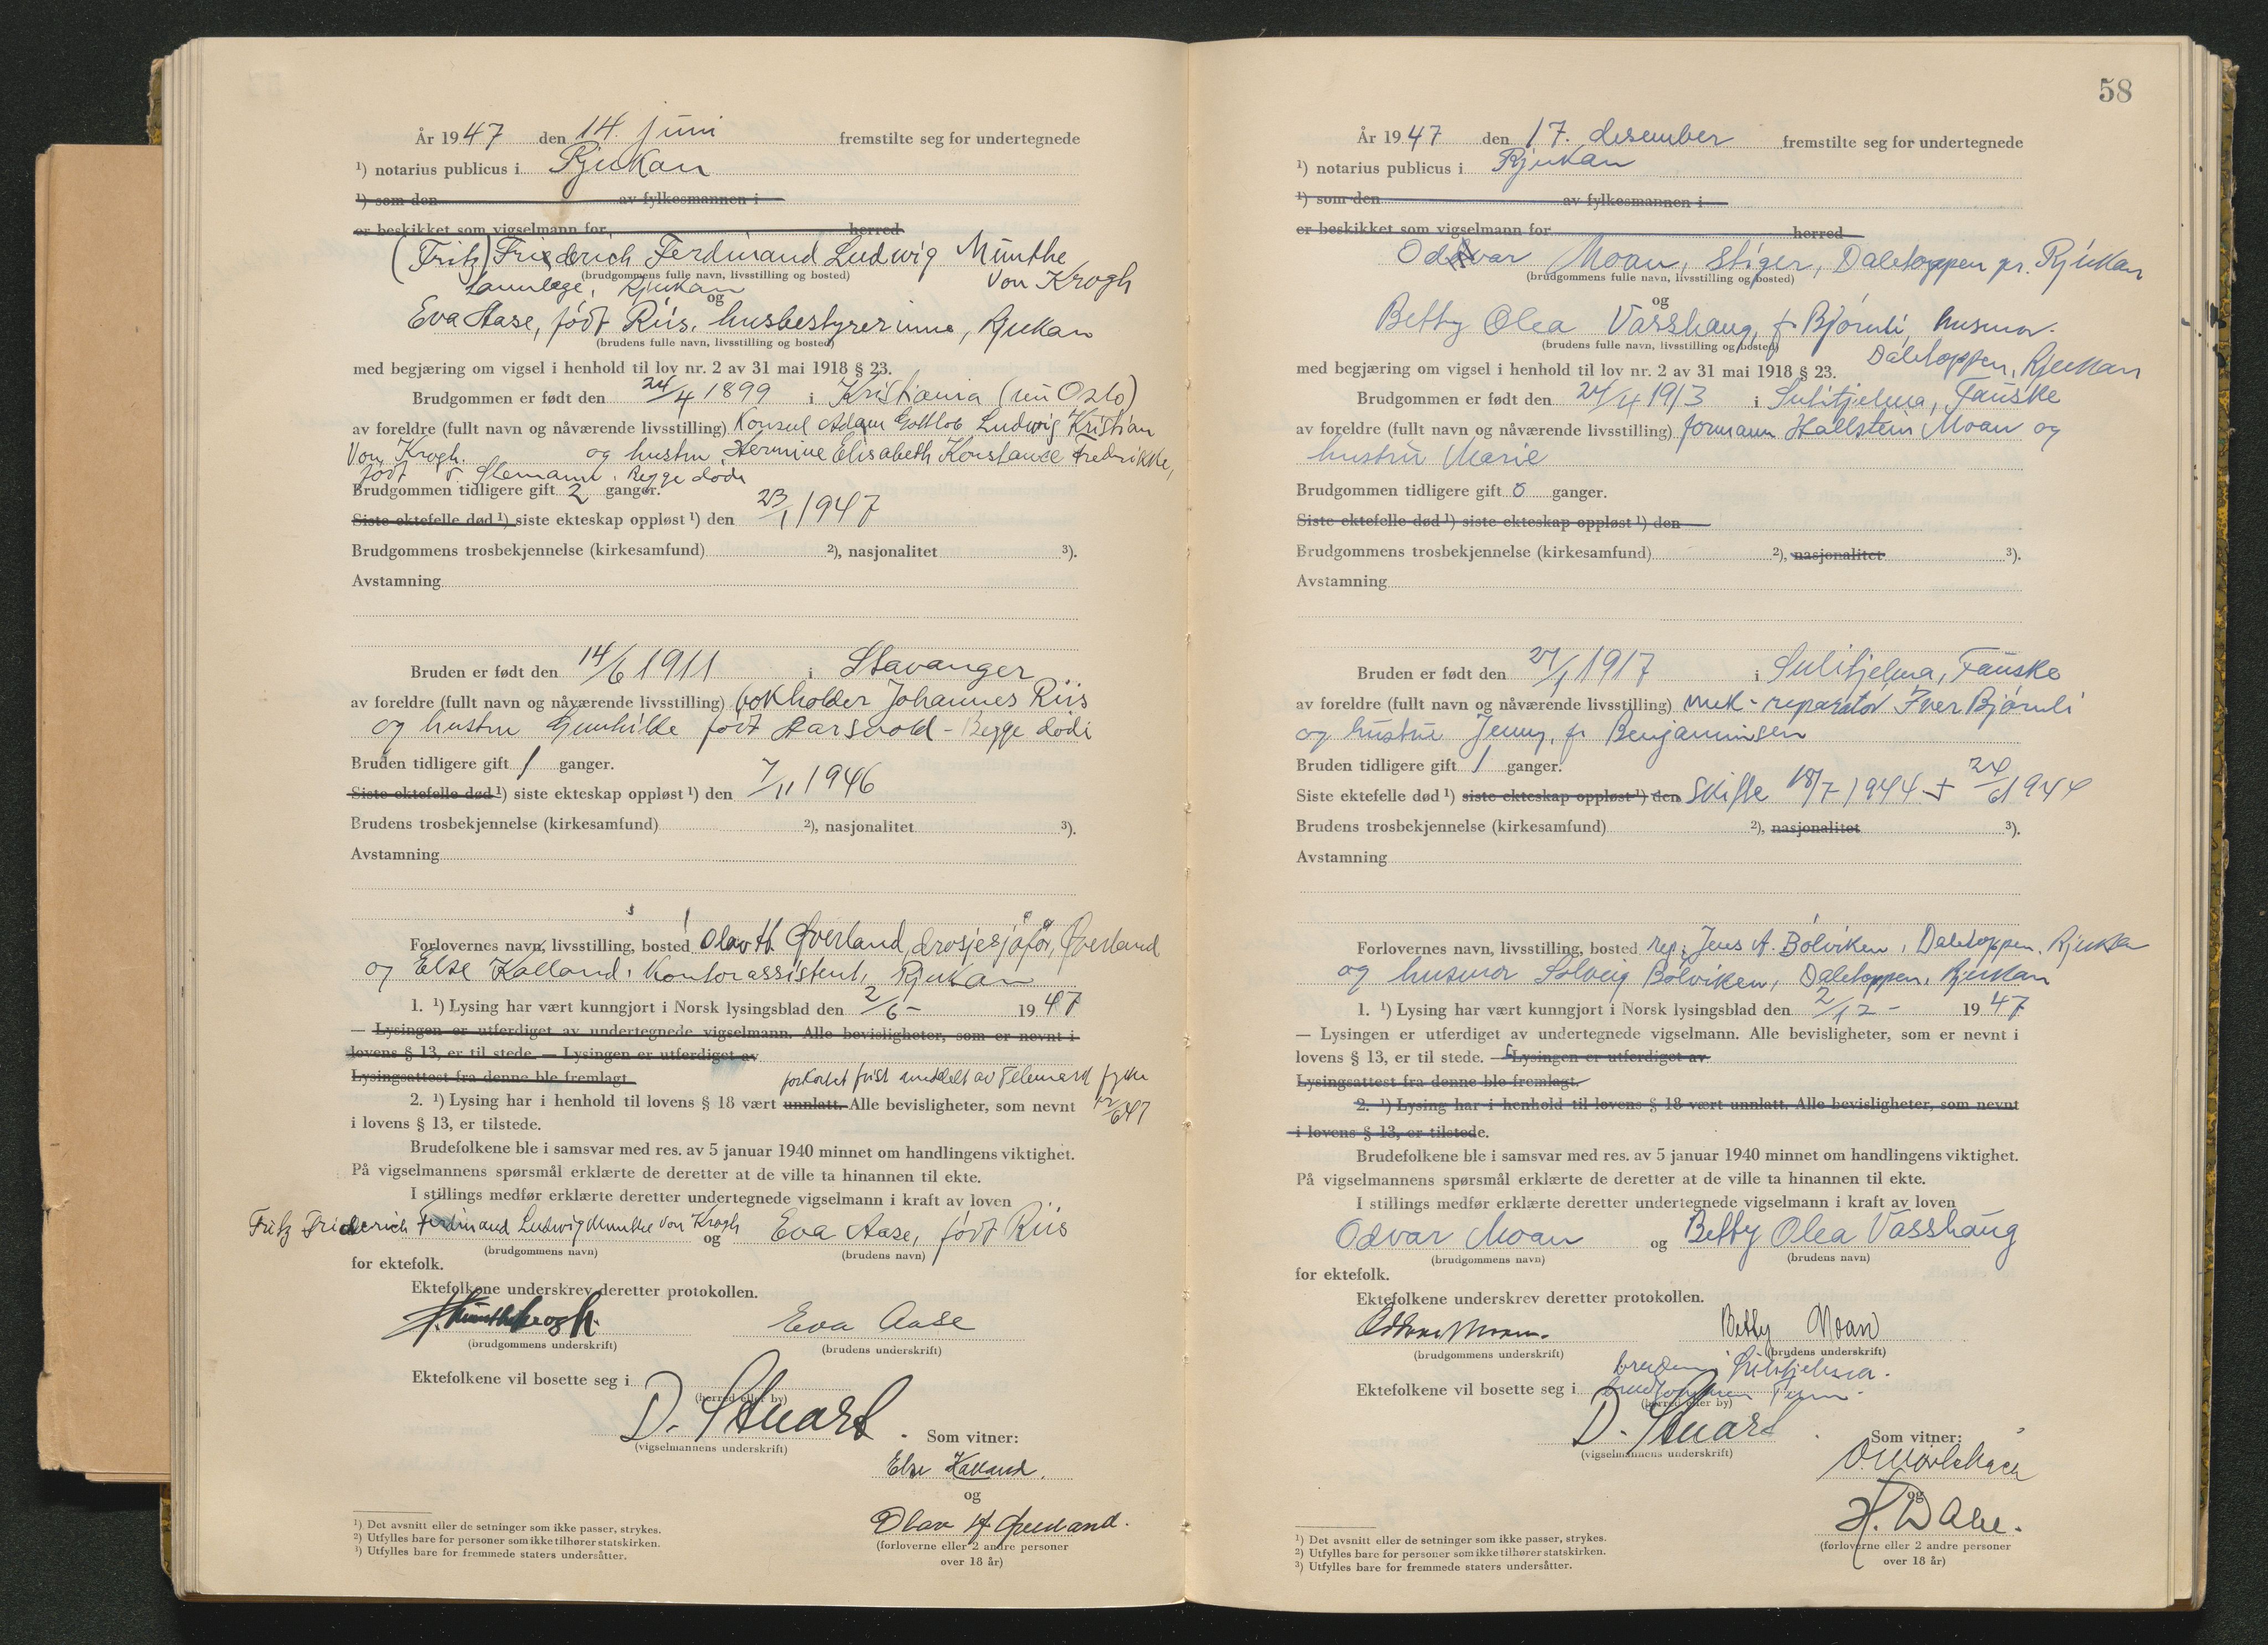 År 1947 den 14. juni fremstilte seg for undertegnede
¹) notarius publicus i Rjukan
¹) som den av fylkesmannen i
er beskikket som vigselmann for herred
(Fritz) Friederich Ferdinand Ludwig Munthe
(brudgommens fulle navn, livsstilling og bosted) von Krogh
tannlege, Rjukan
og
Eva Aase, født Riis, husbestyrerinne, Rjukan
(brudens fulle navn, livsstilling og bosted)
med begjæring om vigsel i henhold til lov nr. 2 av 31 mai 1918 § 23.
Brudgommen er født den 24/4 1899 i Kristiania (nu Oslo)
av foreldre (fullt navn og nåværende livsstilling) Konsul Adam Gottlob Ludwig Kristian
von Krogh. og hustru Hermine Elisabeth Konstance Fredrikke,
født v. Stemann. Begge døde
Brudgommen tidligere gift 2 ganger.
Siste ektefelle død ¹) siste ekteskap oppløst ¹) den 23/1 1947
Brudgommens trosbekjennelse (kirkesamfund) ²), nasjonalitet ³).
Avstamning
Bruden er født den 14/6 1911 i Stavanger
av foreldre (fullt navn og nåværende livsstilling) bokholder Johannes Riis
og hustru Gunhilde født Aarsvold - Begge døde
Bruden tidligere gift 1 ganger.
Siste ektefelle død ¹) siste ekteskap oppløst ¹) den 7/11 1946
Brudens trosbekjennelse (kirkesamfund) ²), nasjonalitet ³).
Avstamning
Forlovernes navn, livsstilling, bosted Olav H. Øverland, drosjesjåfør, Øverland
og Else Kalland, Kontorassistent, Rjukan
1. ¹) Lysing har vært kunngjort i Norsk lysingsblad den 2/6 - 1947
— Lysingen er utferdiget av undertegnede vigselmann. Alle bevisligheter, som er nevnt i
lovens § 13, er til stede. — Lysingen er utferdiget av
Lysingsattest fra denne ble fremlagt forkortet frist meddelt av Telemark fylke
2. ¹) Lysing har i henhold til lovens § 18 vært unnlatt. Alle bevisligheter, som nevnt 12/6 47
i lovens § 13, er tilstede.
Brudefolkene ble i samsvar med res. av 5 januar 1940 minnet om handlingens viktighet.
På vigselmannens spørsmål erklærte de deretter at de ville ta hinannen til ekte.
I stillings medfør erklærte deretter undertegnede vigselmann i kraft av loven
Fritz Friederich Ferdinand Ludwig Munthe von Krogh og Eva Aase, født Riis
(brudgommens navn) (brudens navn)
for ektefolk.
Ektefolkene underskrev deretter protokollen.
F. Munthe Krogh. Eva Aase
(brudgommens underskrift) (brudens underskrift)
Ektefolkene vil bosette seg i
(herred eller by)
D. Stuart
(vigselmannens underskrift) Som vitner:
Else Kalland.
og
Olav H. Øverland.
(forloverne eller 2 andre personer
over 18 år)
¹) Det avsnitt eller de setninger som ikke passer, strykes.
²) Utfylles bare for personer som ikke tilhører statskirken.
¹) Utfylles bare for fremmede staters undersåtter.
58
År 1947 den 17. desember fremstilte seg for undertegnede
¹) notarius publicus i Rjukan
¹) som den av fylkesmannen i
er beskikket som vigselmann for herred
Odvar Moan, stiger, Daletoppen pr. Rjukan
(brudgommens fulle navn, livsstilling og bosted)
og
Betty Olea Vasshaug, f. Bjørnli, husmor.
(brudens fulle navn, livsstilling og bosted) Daletoppen, Rjukan
med begjæring om vigsel i henhold til lov nr. 2 av 31 mai 1918 § 23.
Brudgommen er født den 24/4 1913 i Sulitjelma, Fauske
av foreldre (fullt navn og nåværende livsstilling) formann Hallstein Moan og
hustru Marie
Brudgommen tidligere gift 0 ganger.
Siste ektefelle død ¹) siste ekteskap oppløst ¹) den
Brudgommens trosbekjennelse (kirkesamfund) ²), nasjonalitet ³).
Avstamning
Bruden er født den 27/1 1917 i Sulitjelma, Fauske
av foreldre (fullt navn og nåværende livsstilling) mek-reparatør Iver Bjørnli
og hustru Jenny, f. Benjaminsen
Bruden tidligere gift 1 ganger.
Siste ektefelle død ¹) siste ekteskap oppløst ¹) den Skifte 18/7 1944 + 24/6 1944
Brudens trosbekjennelse (kirkesamfund) ²), nasjonalitet ³).
Avstamning
Forlovernes navn, livsstilling, bosted rep. Jens A. Bolviken, Daletoppen, Rjukan
og husmor Solveig Bolviken, Daletoppen, Rjukan
1. ¹) Lysing har vært kunngjort i Norsk lysingsblad den 2/12 - 1947
— Lysingen er utferdiget av undertegnede vigselmann. Alle bevisligheter, som er nevnt i
lovens § 13, er til stede. — Lysingen er utferdiget av
Lysingsattest fra denne ble fremlagt.
2. ¹) Lysing har i henhold til lovens § 18 vært unnlatt. Alle bevisligheter, som nevnt
i lovens § 13, er tilstede.
Brudefolkene ble i samsvar med res. av 5 januar 1940 minnet om handlingens viktighet.
På vigselmannens spørsmål erklærte de deretter at de ville ta hinannen til ekte.
I stillings medfør erklærte deretter undertegnede vigselmann i kraft av loven
Odvar Moan og Betty Olea Vasshaug
(brudgommens navn) (brudens navn)
for ektefolk.
Ektefolkene underskrev deretter protokollen.
Oddvar Moan. Betty Moan
(brudgommens underskrift) (brudens underskrift)
bruden i Sulitjelma.
Ektefolkene vil bosette seg i brudgommen
(herred eller by)
D. Stuart
(vigselmannens underskrift) Som vitner:
og
H. Dale.
(forloverne eller 2 andre personer
over 18 år)
¹) Det avsnitt eller de setninger som ikke passer, strykes.
²) Utfylles bare for personer som ikke tilhører statskirken.
³) Utfylles bare for fremmede staters undersåtter.